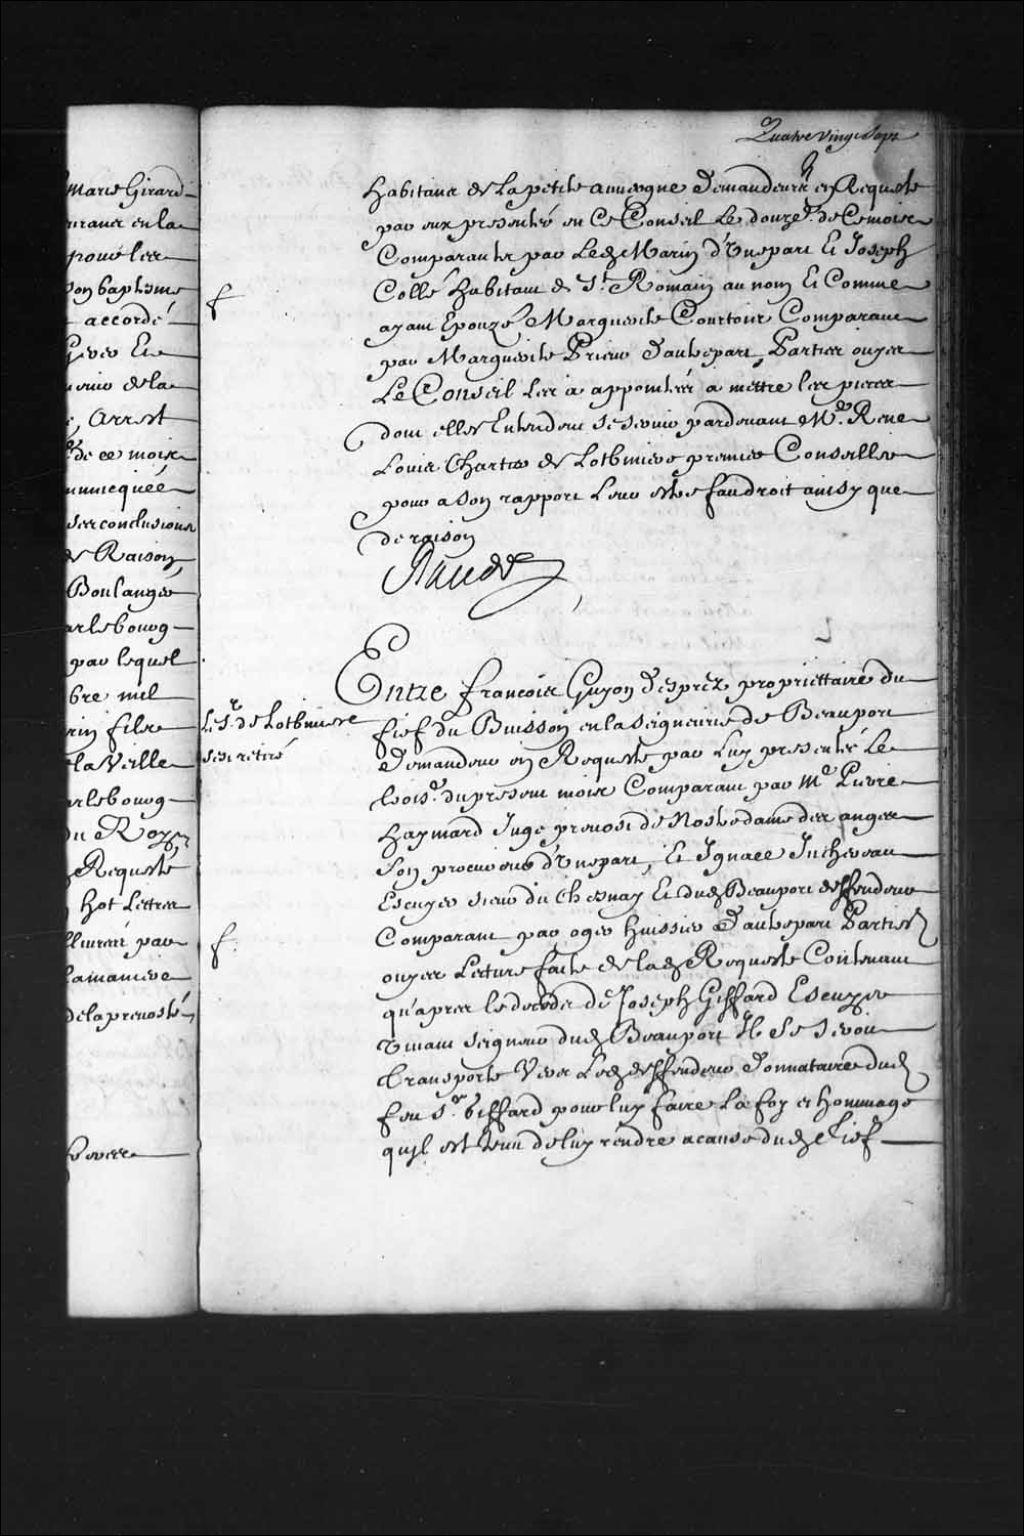 Quatre vingt sept
Marie Girard
en la
son baptesme
accordé
de la
Arrest
de ce mois
ses conclusions
de Raison
Boulanger
arlebourg
par lequel
bre mil
rin fils
la Veille
arlebourg
du Roy
Requeste
hot Lettres
par
la maniere
de la prevosté
habitans de la petite auvergne demandeurs en Requeste
par eux presentée en Ce Conseil Le douze.e de Ce mois
Comparants par Led Marin d'Une part Et Joseph
Collé habitant de St. Romain au nom Et Comme
ayant Epouzé Marguerite Courtois Comparant
par Marguerite Prieur d'autre part, Parties ouyes
Le Conseil Les a appointées a mettre les pieces
dont elles Entendent se servir pardevant Me. Rene
Louis Chartier de Lotbiniere premier Conseiller
pour a Son rapport Leur estre fait droit ainsy que
de raison
Raudot
Entre francois Guyon Desprez propriettaire du
fief du Buisson en la seigneurie de Beauport
Le Sr. de Lotbiniere
sest retiré
Demandeur en Requeste par Luy presentée Le
trois.e du present mois Comparant par Me Pierre
haymard Juge prevost de Nostre dame des anges
Son procureur d'Une part, Et Ignace Juchereau
Escuyer sieur du Chesnay Et dud Beauport deffendeur
Comparant par oger huissier d'autre part Parties
ouyes Lecture faite de lad Requeste Contenant
qu'apres le deceds de Joseph Giffard Escuyer
vivant seigneur dud Beauport Il Se Seroit
transporté Vers Led deffendeur donnataire dud
feu Sr. Giffard pour luy faire La foy et hommage
quil est tenu de luy rendre a cause dud fief